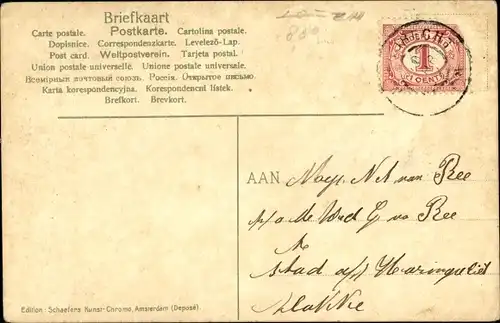 Briefkaart
Carte postale. Postkarte. Cartolina postale.
Dopisnice. Correspondenzkarte. Levelező-Lap.
Post card. Weltpostverein. Tarjeta postal.
Union postale universelle. Unione postale universale.
Всемірный почтовый союзъ. Россія. Открытое письмо.
Karta korespondencyjna. Korespondencní listek.
Brefkort. Brevkort.
1
CENT
AAN
Mej. Net van Bee
p/a de Wed G van Bee
te
Stad a/h Haringvliet
Flakkee
Edition: Schaefers Kunst-Chromo, Amsterdam (Deposé)